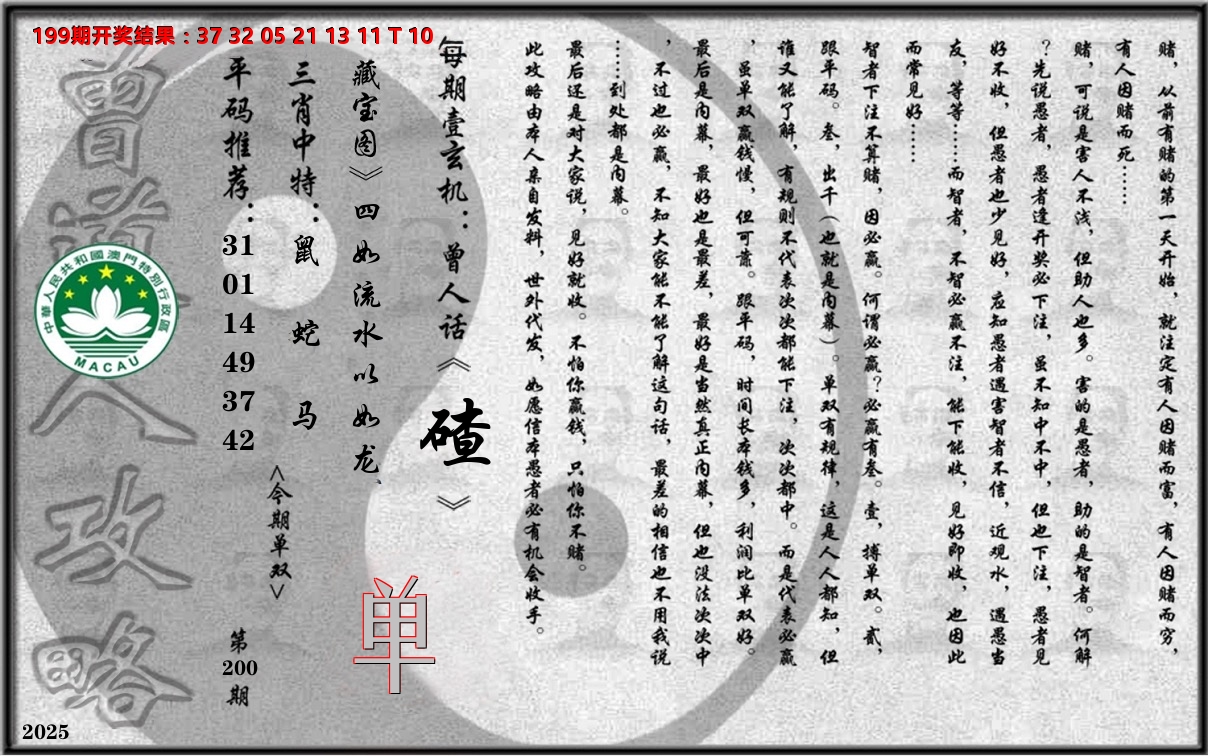 199期开奖结果：37 32 05 21 13 11 T 10
赌，从前有赌的第一天开始，就注定有人因赌而富，有人因赌而穷，
有人因赌而死……
赌，可说是害人不浅，但助人也多。害的是愚者，助的是智者。何解
？先说愚者，愚者逢开奖必下注，虽不知中不中，但也下注，愚者见
好不收，但愚者也少见好，应知愚者遇害智者不信，近观水，遇愚当
友，等等……而智者，不智必赢不注，能下能收，见好即收，也因此
而常见好……
智者下注不算赌，因必赢。何谓必赢？必赢有叁。壹，搏单双。贰，
跟平码。叁，出千（也就是内幕）。单双有规律，这是人人都知，但
谁又能了解，有规则不代表次次都能下注，次次都中。而是代表必赢
，虽单双赢钱慢，但可靠。跟平码，时间长本钱多，利润比单双好。
最后是内幕，最好也是最差，最好是当然真正内幕，但也没法次次中
，不过也必赢，不知大家能不能了解这句话，最差的相信也不用我说
……到处都是内幕。
最后还是对大家说，见好就收。不怕你赢钱，只怕你不赌。
此攻略由本人亲自发料，世外代发，如愿信本愚者必有机会收手。
每期壹玄机：曾人话《碴》
藏宝图》四如流水以如龙、
单
三肖中特：鼠 蛇 马
<今期单双>
平码推荐：31 01 14 49 37 42
第200期
曾道人攻略
中華人民共和國澳門特別行政區
MACAU
2025